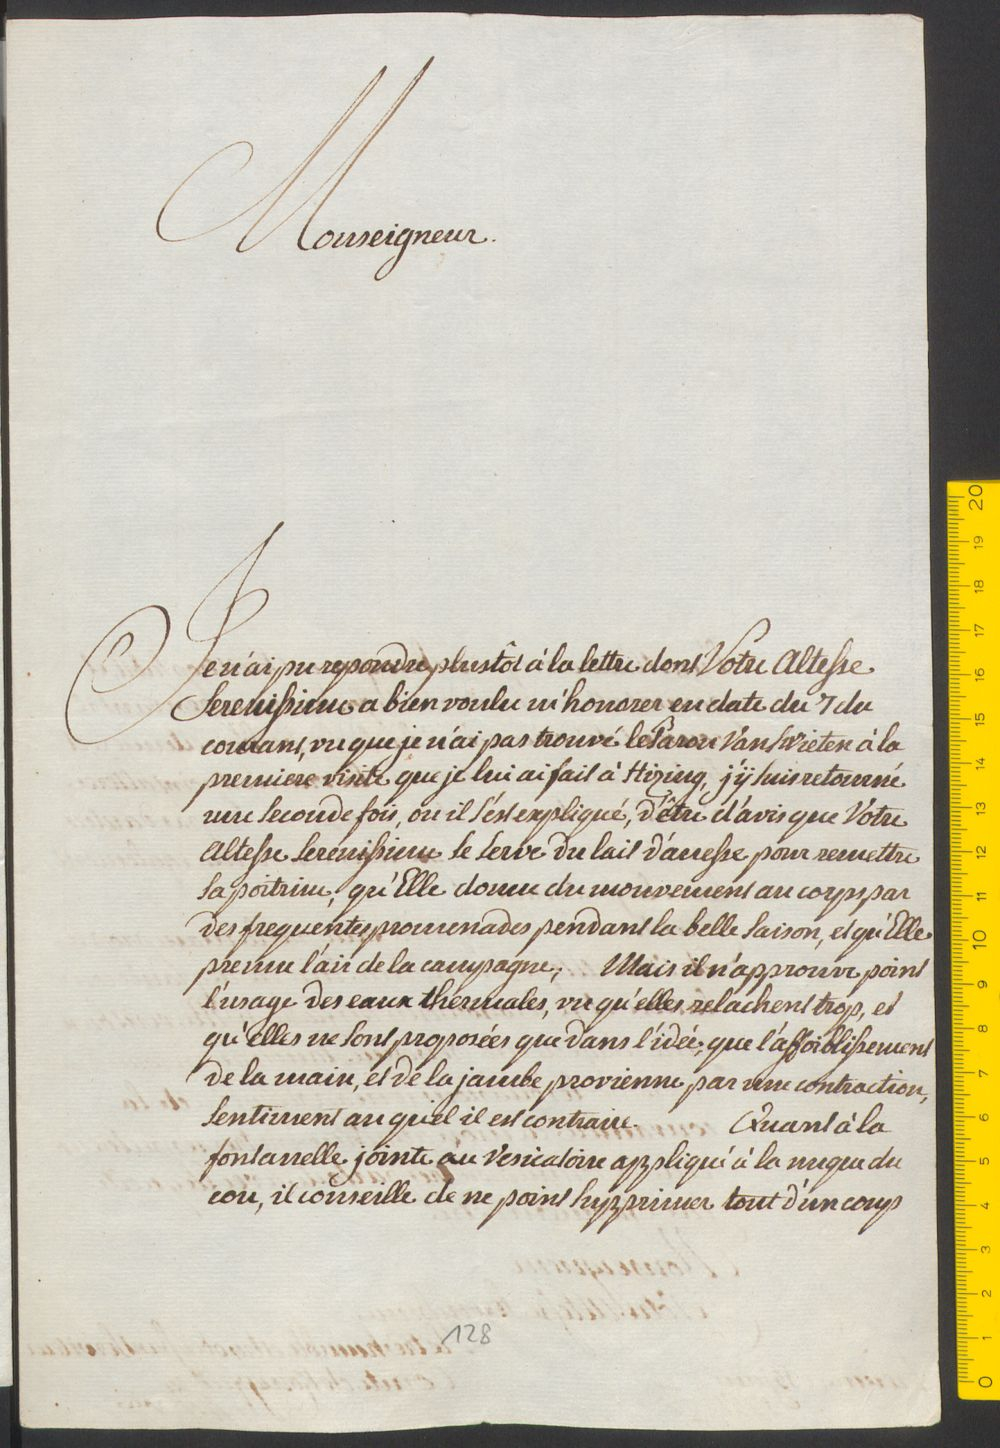 Monseigneur.
Je n'ai pu repondre plustôt à la lettre dont Votre Altesse
Serenissime a bien voulu m'honorer en date du 7 du
courant, vu que je n'ai pas trouvé le Baron Van Swieten à la
premiere visite que je lui ai fait à Hizing, j'ÿ suis retourné
une seconde fois, ou il s'est expliqué, d'être d'avis que Votre
Altesse Serenissime se serve du lait d'anesse pour remettre
sa poitrine, qu'Elle donne du mouvement au corps par
des frequentes promenades pendant la belle saison, et qu'Elle
prenne l'air de la campagne; Mais il n'approuve point
l'usage des eaux thermales, vu qu'elles relachent trop, et
qu'elles ne sont proposées que dans l'idée, que l'affoiblissement
de la main, et de la jambe provienne par une contraction,
sentiment au quel il est contraire. Quant à la
fontanelle jointe au vesicatoire appliqué à la nuque du
cou, il conseille de ne point supprimer tout d'un coup
128
20
19
18
17
16
15
14
13
12
11
10
9
8
7
6
5
4
3
2
1
0